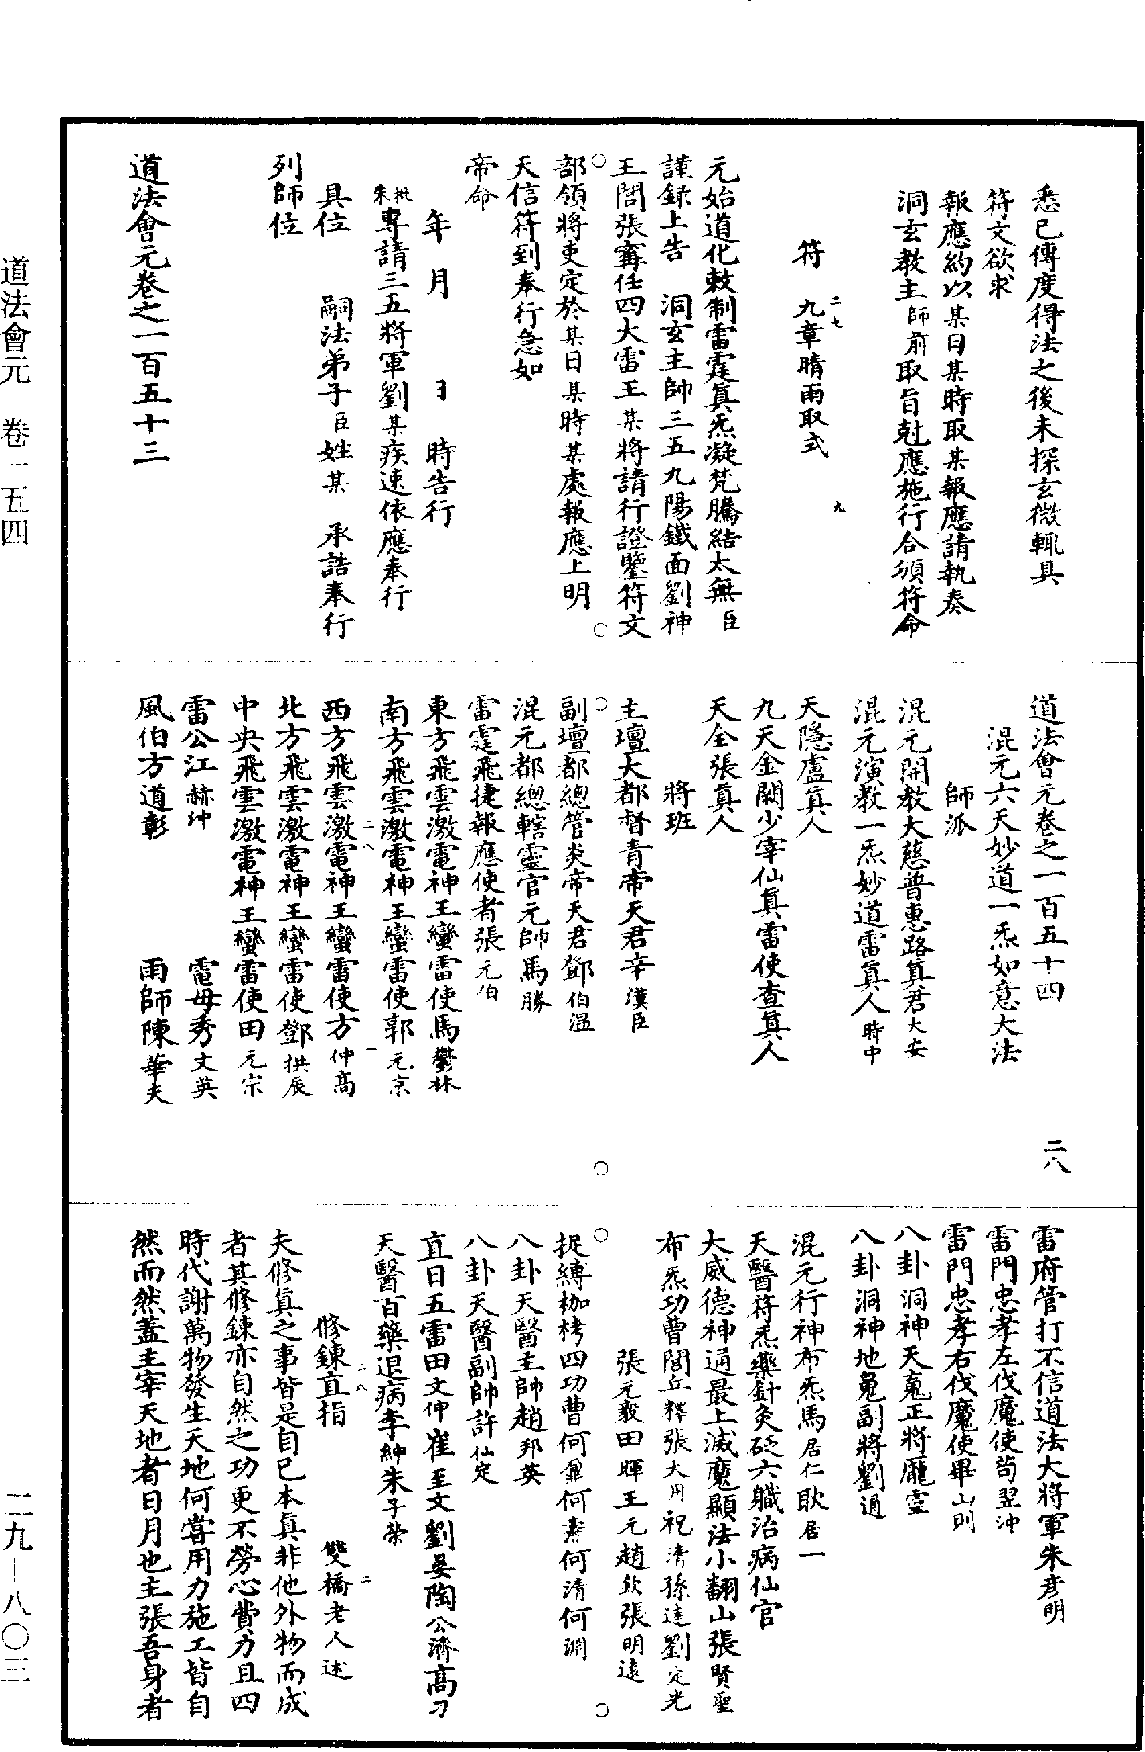 悉已傳度得法之後未探玄微輒具
符文欲求
報應約以某日某時取某報應請執奏
洞玄教主師前取旨尅應施行合頒符命
符　九章晴雨取式
二七
九
元始道化敕制雷霆眞炁凝梵騰結太無臣
謹錄上告　洞玄主帥三五九陽鐵面劉神
王閻張寗任四大雷王某將請行證鑒符文
部領將吏定於某日某時某處報應上明
天信符到奉行急如
帝命
年　月　日　時告行
朱批專請三五將軍劉某疾速依應奉行
具位　嗣法弟子臣姓某　承誥奉行
列師位
道法會元卷之一百五十三
道法會元卷之一百五十四　二八
混元六天妙道一炁如意大法
師派
混元開教大慈普惠路眞君大安
混元演教一炁妙道雷眞人時中
天隱盧眞人
九天金闕少宰仙眞雷使查眞人
天全張眞人
將班
主壇大都督青帝天君辛漢臣
副壇都總管炎帝天君鄧伯溫
混元都總轄靈官元帥馬勝
雷霆飛捷報應使者張元伯
東方飛雲激電神王蠻雷使馬鬱林
南方飛雲激電神王蠻雷使郭元京
二八
一
西方飛雲激電神王蠻雷使方仲高
北方飛雲激電神王蠻雷使鄧拱辰
中央飛雲激電神王蠻雷使田元宗
雷公江赫冲　電母秀文英
風伯方道彰　雨師陳華夫
雷府管打不信道法大將軍朱彥明
雷門忠孝左伐魔使苟翌沖
雷門忠孝右伐魔使畢山則
八卦洞神天䰟正將龐靈
八卦洞神地䰟副將劉通
混元行神布炁馬居仁耿居一
天醫符炁藥針灸砭六職治病仙官
大威德神通最上滅魔顯法小翻山張賢聖
布炁功曹閻丘釋張大用祝清孫達劉定光
張元毅田暉王元趙欽張明遠
捉縛枷栲四功曹何鼎何燾何清何淵
八卦天醫主帥趙邦英
八卦天醫副帥許仙定
直日五雷田文仲崔至文劉晏陶公濟高刁
天醫百藥退病李紳朱子榮
二八
二
修鍊直指　雙橋老人述
夫修眞之事皆是自己本眞非他外物而成
者其修鍊亦自然之功更不勞心費力且四
時代謝萬物發生天地何嘗用力施工皆自
然而然蓋主宰天地者日月也主張吾身者
道法會元　卷一五四
二九—八〇三